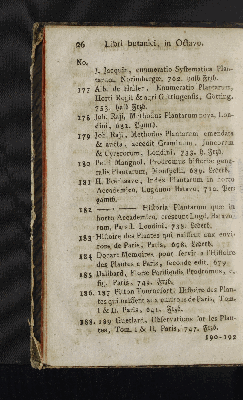 26 Libri botanici, in Octavo.
No.
J. Jacquin, enumeratio Systematica Plan-
tarum. Norimbergæ, 702. halb Frzb.
177 A.b. de Haller, Enumeratio Plantarum,
Horti Regii & agri Gottingensis, Götting.
753. halb Frzb.
178 Joh. Raji, Methodus Plantarum nova, Lon-
dini, 682.
179 Joh. Raji, Methodus Plantarum emendata
& aucta, accedit Graminum, Juncorum
& Cyperorum, Londini, 733. h. Frzb.
180 Petri Magnol, Prodromus historiæ gene-
ralis Plantarum, Monspell. 689.
181 H. Boerhaave, Index Plantarum in horto
Accademico, Lugdunum Batavor. 710. Per-
gamtb.
182 — — Historia Plantarum quæ in
horto Accademico, crescunt Lugd. Batavo-
rum, Pars I. Londini, 738.
183 Histoire des Plantes qui naissent aux envi-
rons de Paris, Paris, 698.
184 Dodart Memoires pour servir a l'Histoire
des Plantes a Paris, seconde edit. 679.
185 Dalibard, Floræ Parisiensis Prodromus, c.
fig. Paris, 749. Frzb.
186. 187 Pitton Tournefort, Histoire des Plan-
tes qui naissent aux environs de Paris, Tom.
I & II. Paris, 741. Frzb.
188. 189 Guettard, Observations sur les Plan-
tes, Tom. I & II. Paris, 747. Frzb.
190-192